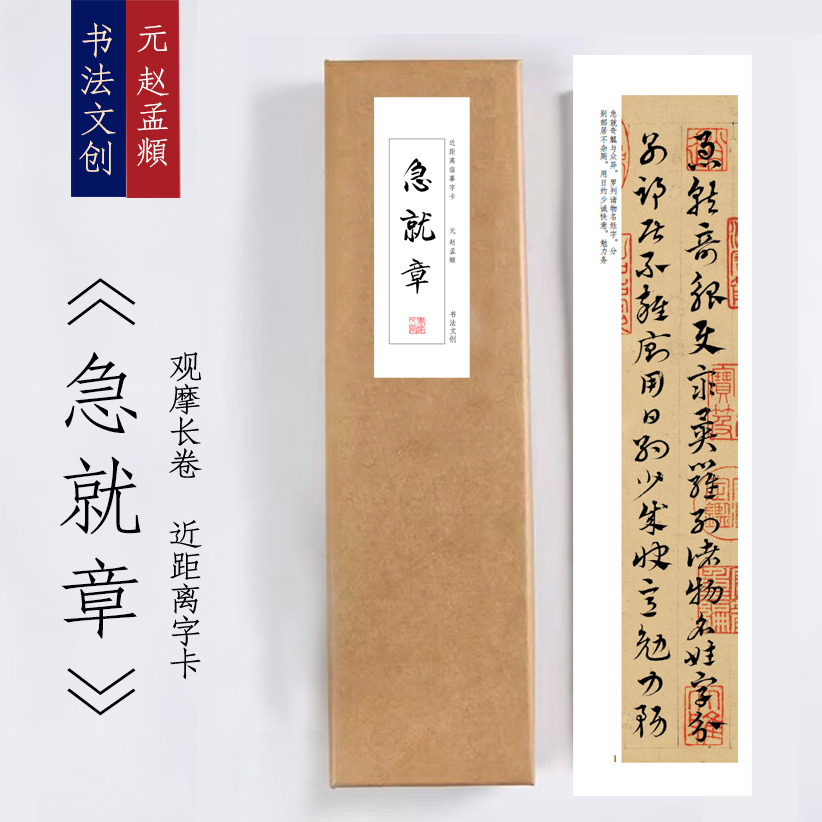 元 赵孟頫
书法文创
《急就章》
观摩长卷 近距离字卡
近距离临摹字卡 元 赵孟頫 书法文创
急就章
急就奇觚与众异。罗列诸物名姓字。分
别部居不杂厕。用日约少诚快意。勉力务
急就奇觚與衆異羅列諸物名姓字分
別部居不雜廁用日約少誠快意勉力務
1